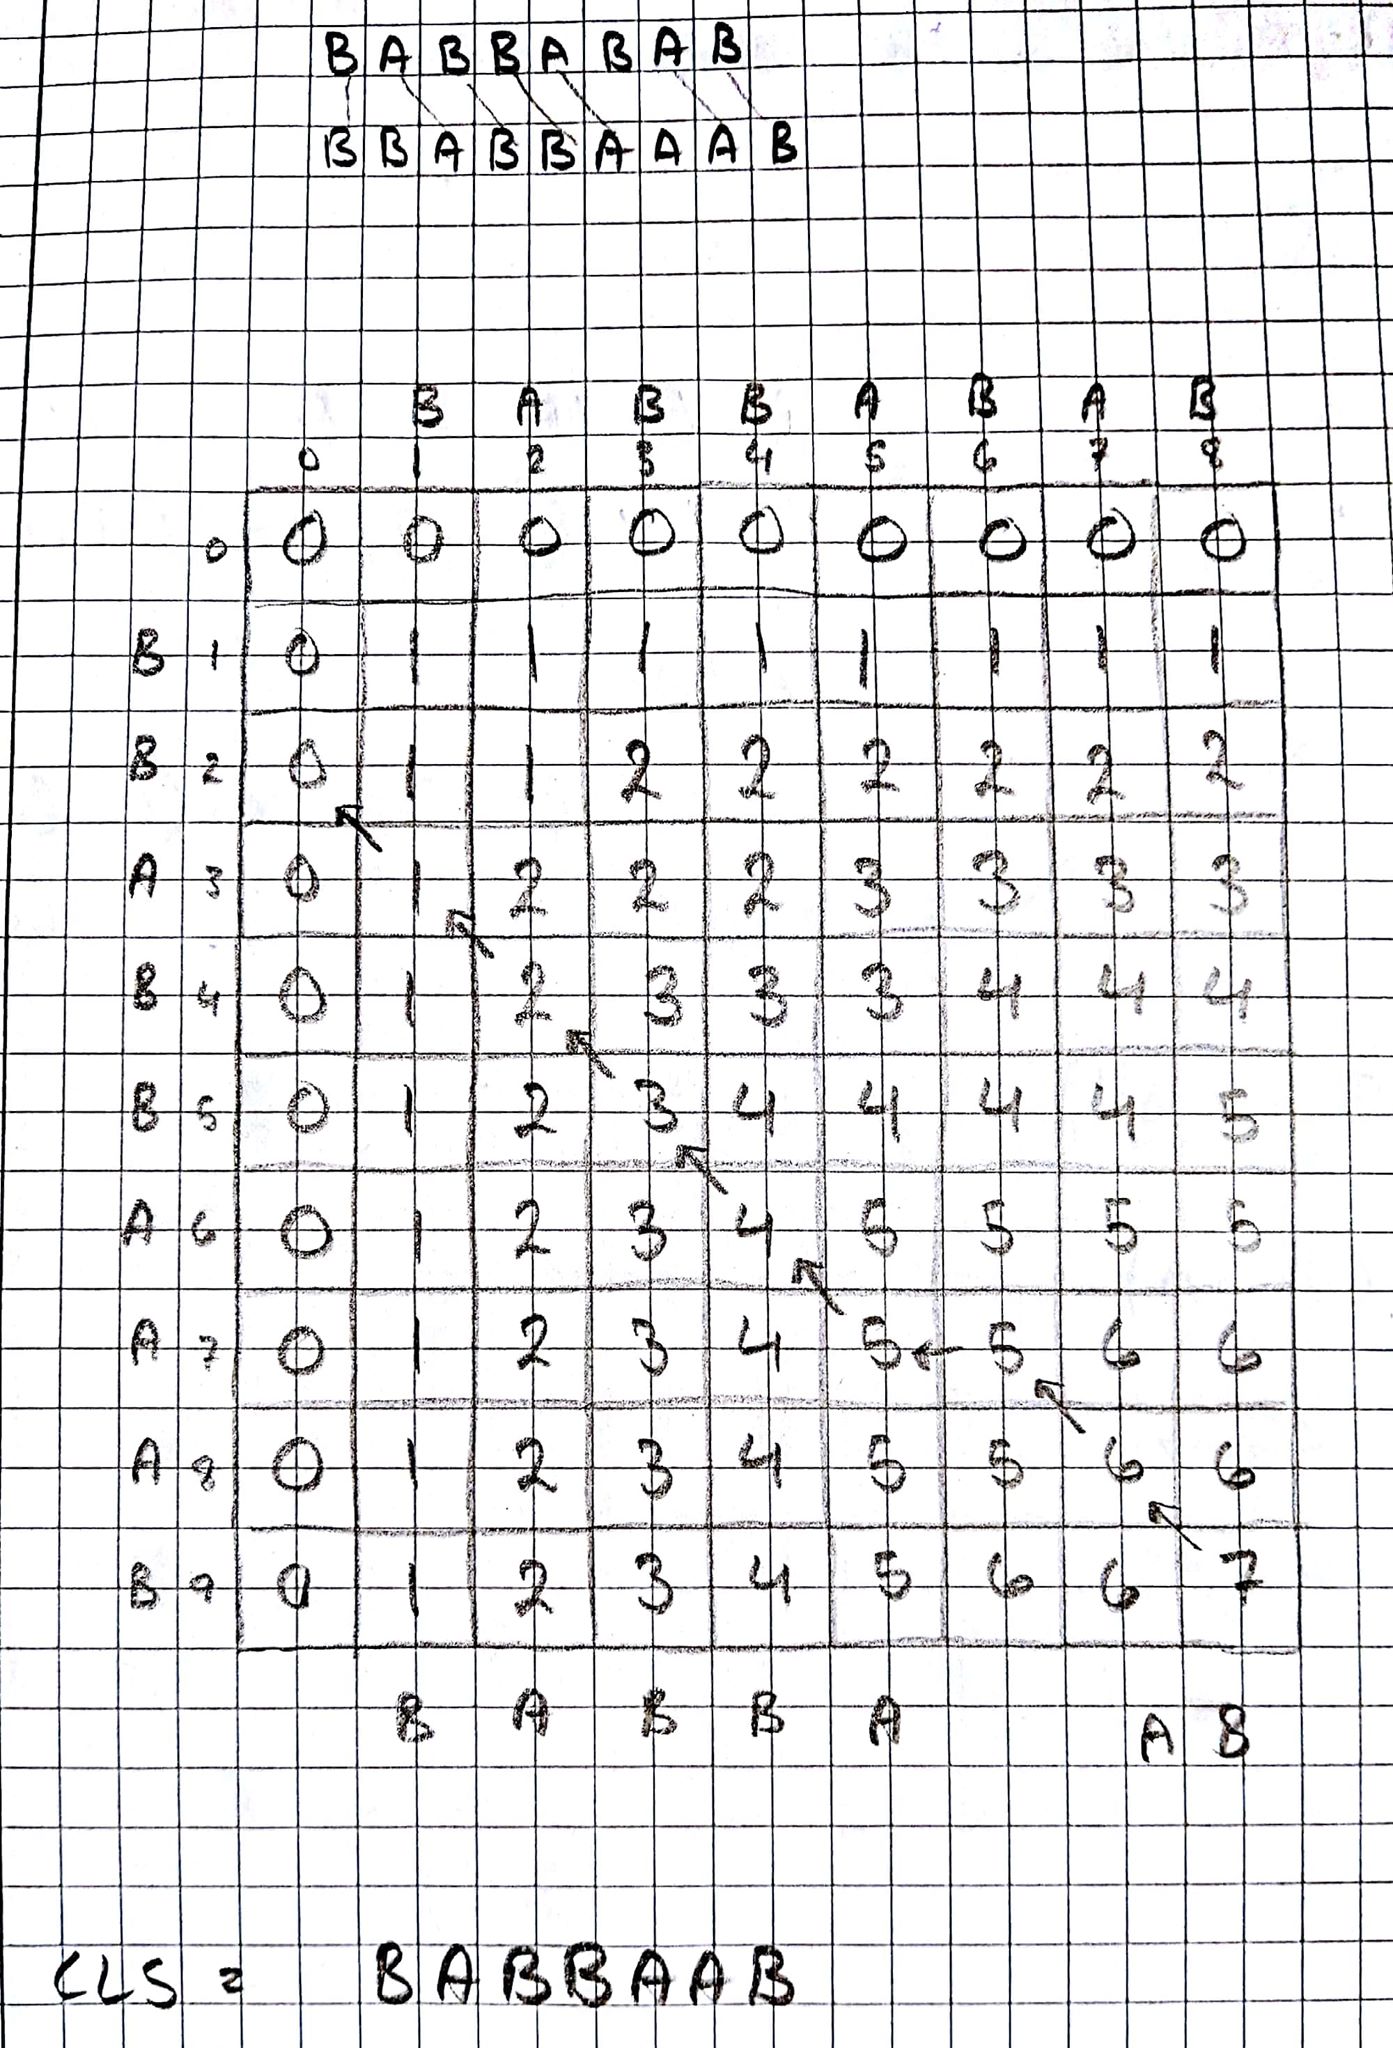 B A B B A B A B
B B A B B A A A B
B A B B A B A B
0 1 2 3 4 5 6 7 8
0 0 0 0 0 0 0 0 0 0
B 1 0 1 1 1 1 1 1 1 1
B 2 0 1 1 2 2 2 2 2 2
A 3 0 1 2 2 2 3 3 3 3
B 4 0 1 2 3 3 3 4 4 4
B 5 0 1 2 3 4 4 4 4 5
A 6 0 1 2 3 4 5 5 5 5
A 7 0 1 2 3 4 5 ← 5 6 6
A 8 0 1 2 3 4 5 5 6 6
B 9 0 1 2 3 4 5 6 6 7
B A B B A A B
CLS = B A B B A A B